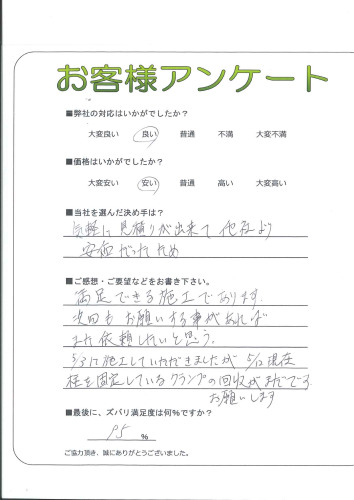 お客様アンケート
■弊社の対応はいかがでしたか？
大変良い 良い 普通 不満 大変不満
■価格はいかがでしたか？
大変安い 安い 普通 高い 大変高い
■当社を選んだ決め手は？
気軽に見積りが出来て他社より
安価だったため
■ご感想・ご要望などをお書き下さい。
満足できる施工であります。
次回もお願いする事があれば
また依頼したいと思う。
5/3に施工していただきましたが 5/12現在
柱を固定しているクランプの回収がまだです。
お願いします
■最後に、ズバリ満足度は何%ですか？
95 %
ご協力頂き、誠にありがとうございました。